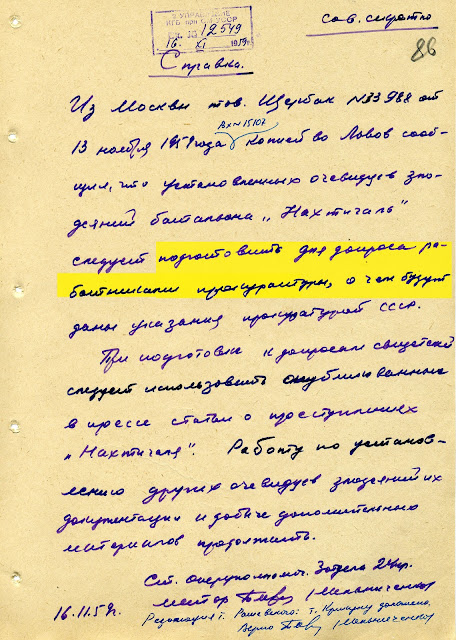 2 УПРАВЛЕНИЕ
КГБ при СМ УССР
Вх. № 12549
16. XI 1959г.
Сов. секретно
86
Справка.
Из Москвы тов. Щербак №33988 от
Вх № 15107
13 ноября 1959 года копией во Львов сооб-
щил, что установленных очевидцев зло-
деяний батальона „Нахтигаль"
следует подготовить для допроса ра-
ботниками прокуратуры, о чем будут
даны указания прокуратурой СССР.
При подготовке к допросам свидетелей
следует использовать опубликованные
в прессе статьи о преступлениях
„Нахтигаля". Работу по установ-
лению других очевидцев злодеяний их
документации и добыче дополнительных
материалов продолжить.
Ст. оперуполномоч. 3 отдела 2 упр.
майор /Мельниченко/
16.11.59г.
Резолюция т. доложена.
Верно /Мельниченко/